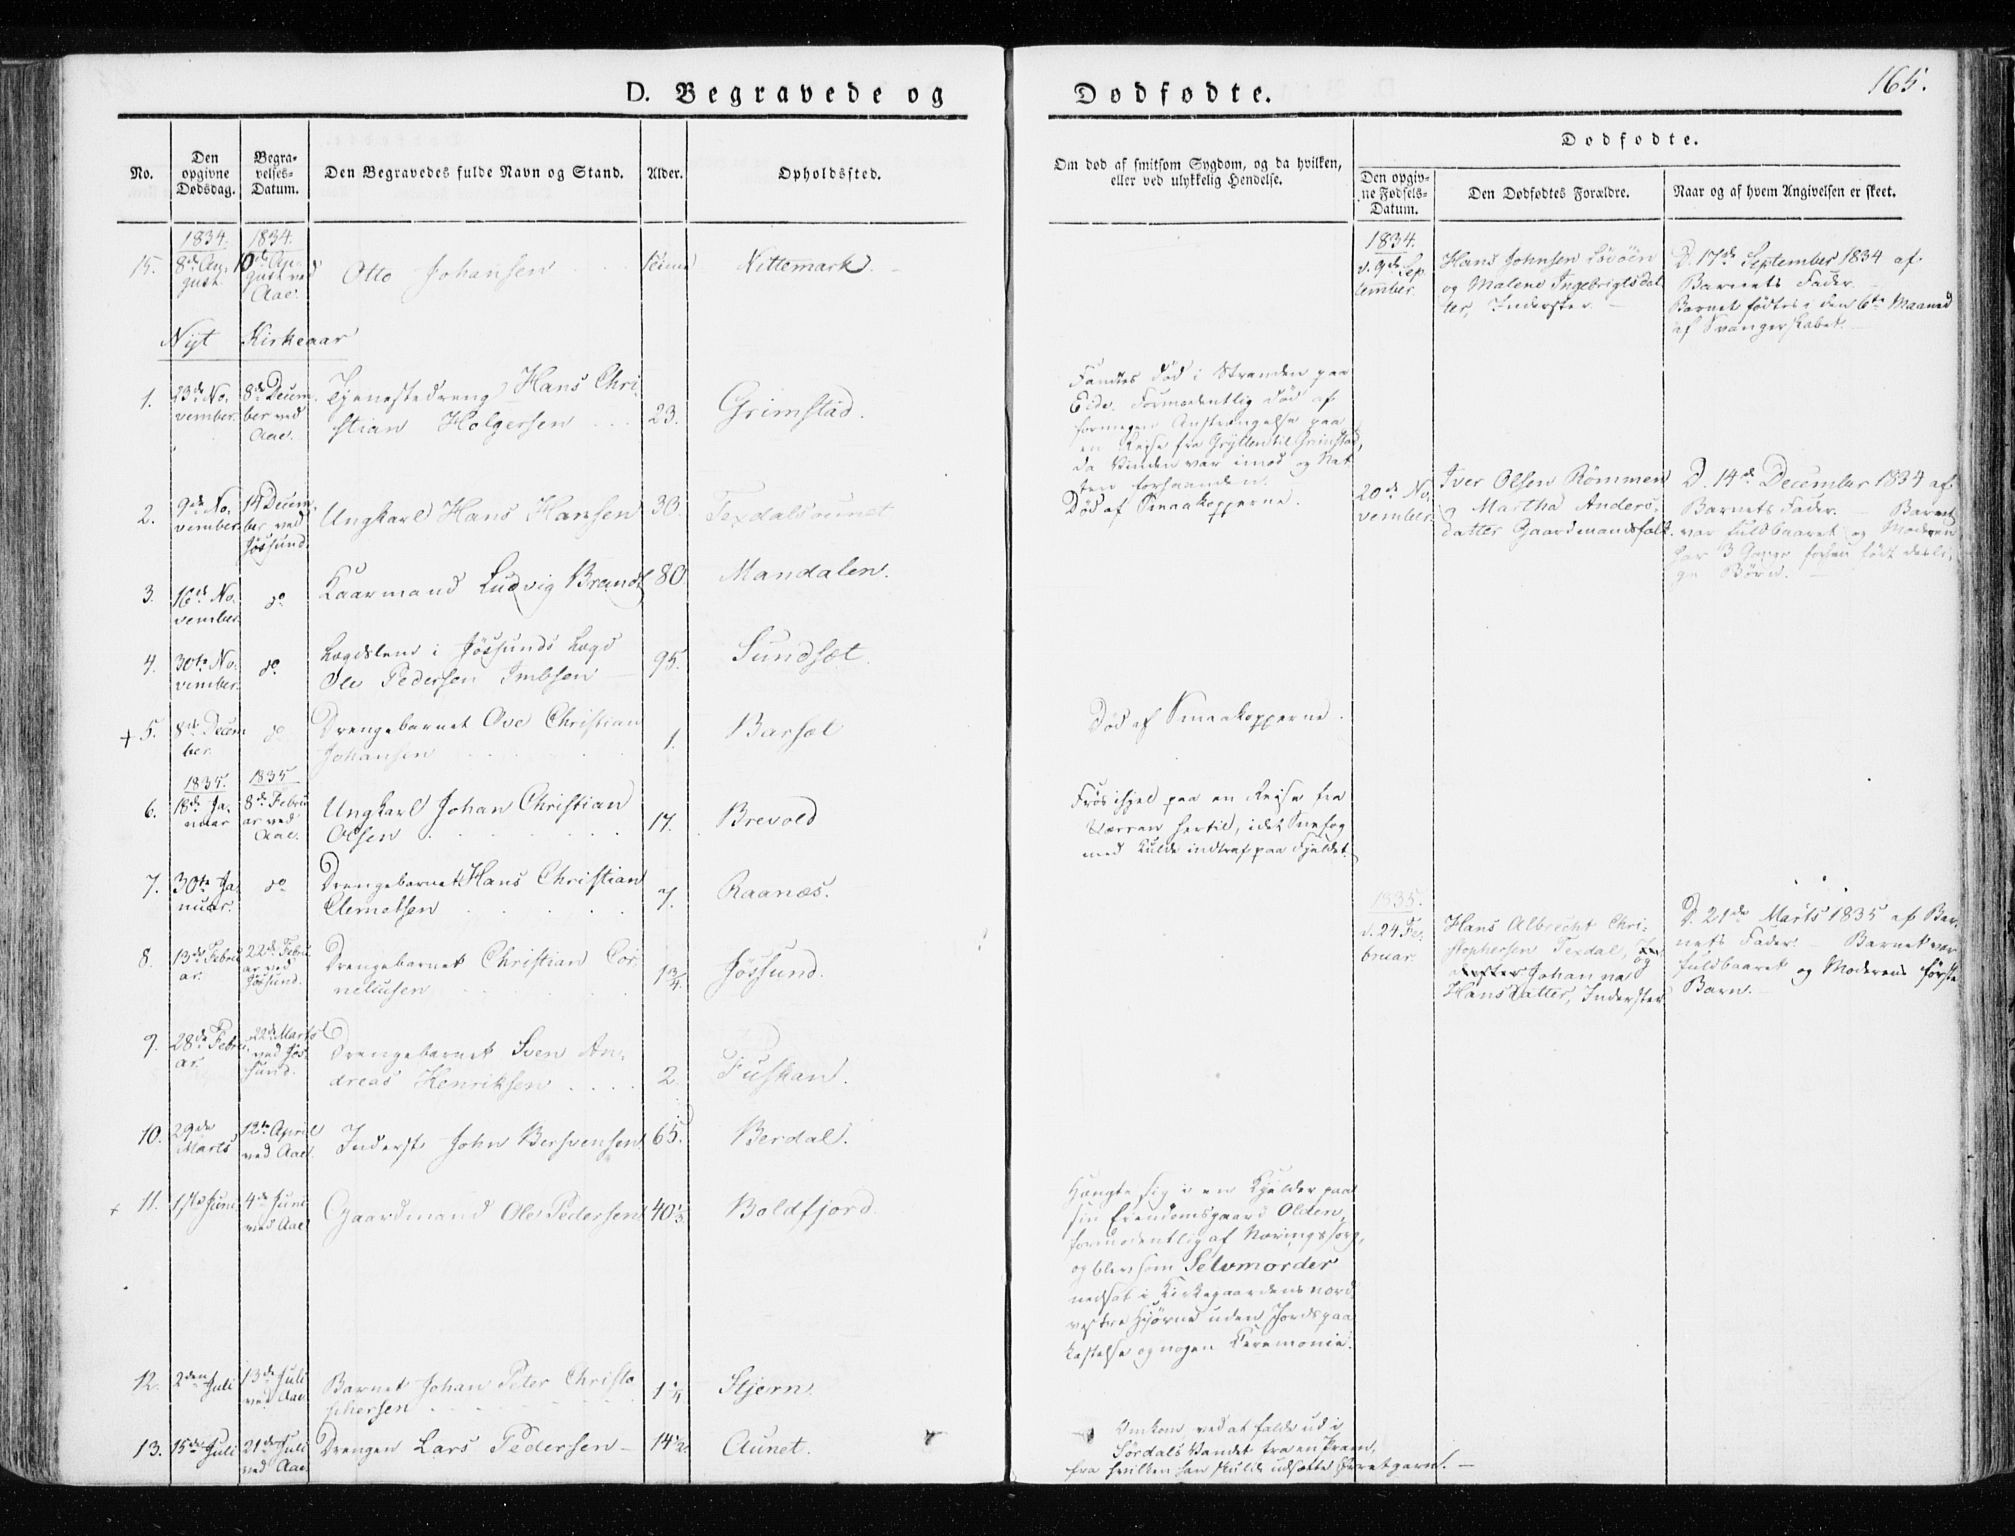 165.
D. Begravede og
Dødfødte.
No.
Den opgivne Dødsdag.
Begravelses-Datum.
Den Begravedes fulde Navn og Stand.
Alder.
Opholdssted.
Om død af smitsom Sygdom, og da hvilken,
eller ved ulykkelig Hendelse.
Dødfødte.
Den opgivne Fødsels-Datum.
Den Dødfødtes Forældre.
Naar og af hvem Angivelsen er skeet.
1834. 1834.
15. 8de August 10de August ved Aae. Otto Johansen Nittemark.
Nyt Kirkeaar
1. 23de November. 8de December ved Aae. Tjenestedreng Hans Chri-
stian Holgersen 23. Grimstad.
Fandtes død i Stranden paa
Eide. Formodentlig død af
formegen Anstrængelse paa
en Reise fra Grytten til Grimstad,
da Vinden var imod og Nat-
ten forhaanden.
2. 9de November. 14 December ved Jøssund. Ungkarl Hans Hansen 30. Texdalsaunet
Død af Smaakopperne.
3. 16de November. do Kaarmand Ludvig Brandt 80. Mandalen.
4. 30te November. do Lægdslem i Jøssunds Lægd
Ole Pedersen Imbsen 95. Sundsæt.
+ 5. 8de December. do Drengebarnet Ove Christian
Johansen 1. Barsæt
Død af Smaakopperne.
1835. 1835
6. 18de Januar 8de Februar ved Aae. Ungkarl Johan Christian
Olsen 17. Brevold
Frøs ihjel paa en Reise fra
Værran hertil, idet Snefog
med Kulde indtraf paa Fjeldet.
7. 30te Januar. do Drengebarnet Hans Christian
Clemetsen 7. Raanæs.
8. 13de Februar. 22de Februar ved Jøssund. Drengebarnet Christian Cor-
neliusen 1 3/4. Jøssund.
9. 28de Februar. 22de Marts ved Jøssund. Drengebarnet Sven An-
dreas Henriksen 2. Fuskan.
10. 29de Marts 12te April ved Aae. Inderst John Bersvensen 65. Berdal.
+ 11. 1ste Juni 4de Juni ved Aae Gaardmand Ole Pedersen 40 1/3. Boldfjord.
Hængte sig i en Kjelder paa
sin Eiendomsgaard Olden,
formodentlig af Næringssorg,
og blev som Selvmorder
nedsat i Kirkegaardens nord-
vestre Hjørne uden Jordspaa-
kastelse og nogen Ceremonie.
12. 2den Juli 13de Juli ved Aae Barnet Johan Peter Christo-
phersen 1 1/4. Stjern.
13. 15de Juli 21de Juli ved Aae. Drengen Lars Pedersen 14 1/2 Aunet.
Omkom ved at falde ud i
Sørdals Vandet fra en Pram,
fra hvilken han skulde udsætte Ørretgarn.
1834.
d. 9de September. Hans Johnsen Løvøen
og Malene Ingebrigtsdat-
ter, Inderster.
D. 17de September 1834 af
Barnets Fader.
Barnet fødtes i den 6te Maaned
af Svangerskabet.
20de November. Iver Olsen Rømmen
og Martha Anders-
datter Gaardmandsfolk.
D. 14de December 1834 af
Barnets Fader. Barnet
var fuldbaaret og Moderen
har 3 Gange forhen født desli-
ge Børn.
1835.
d. 24 Februar. Hans Albrecht Chri-
stophersen Texdal, og
Johanna
Hansdatter, Inderster.
D. 21de Marts 1835 af Bar-
nets Fader. Barnet var
fuldbaaret og Moderens første
Barn.